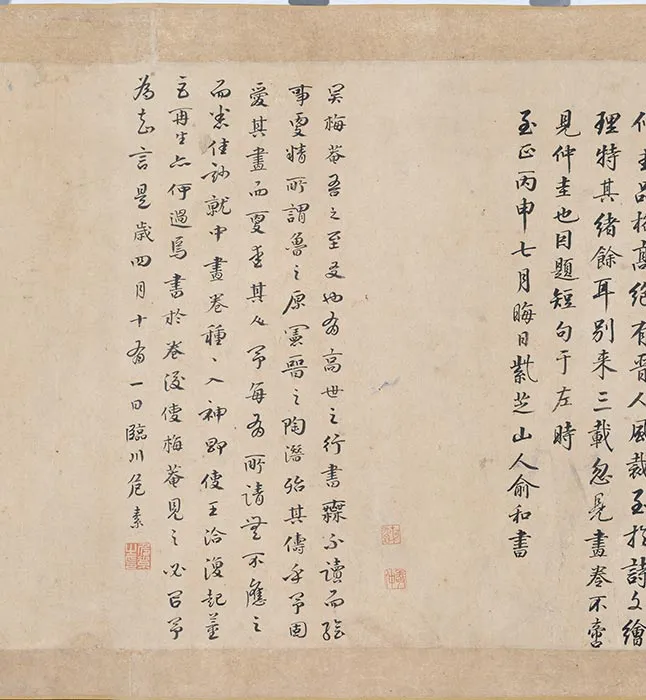 仲圭品格高絕有晋人風裁至於詩文繪
理特其緒餘耳別来三載忽見畫卷不啻
見仲圭也因題短句于左時
至正丙申七月晦日紫芝山人俞和書
吴梅菴吾之至友也有高世之行書無不讀而繪
事更精所謂魯之原憲晋之陶潛殆其儔乎予固
愛其畫而更重其人予每有所請無不應之
而悉佳妙就中畫卷種、入神即使王洽復起董
巨再生亦何過焉書於卷後使梅菴見之必以予
為知言是歲四月十有一日臨川危素